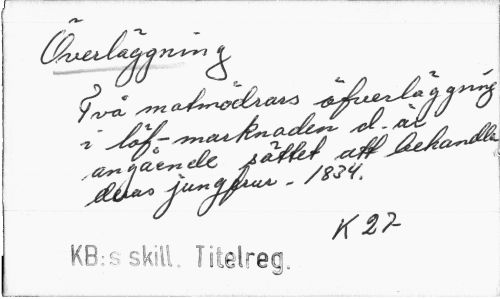 Överläggning
Två matmödrars öfverläggning
i löf-marknaden d. är
angående sättet att behandla
deras jungfrur - 1834.
K 22
KB:s skill. Titelreg.